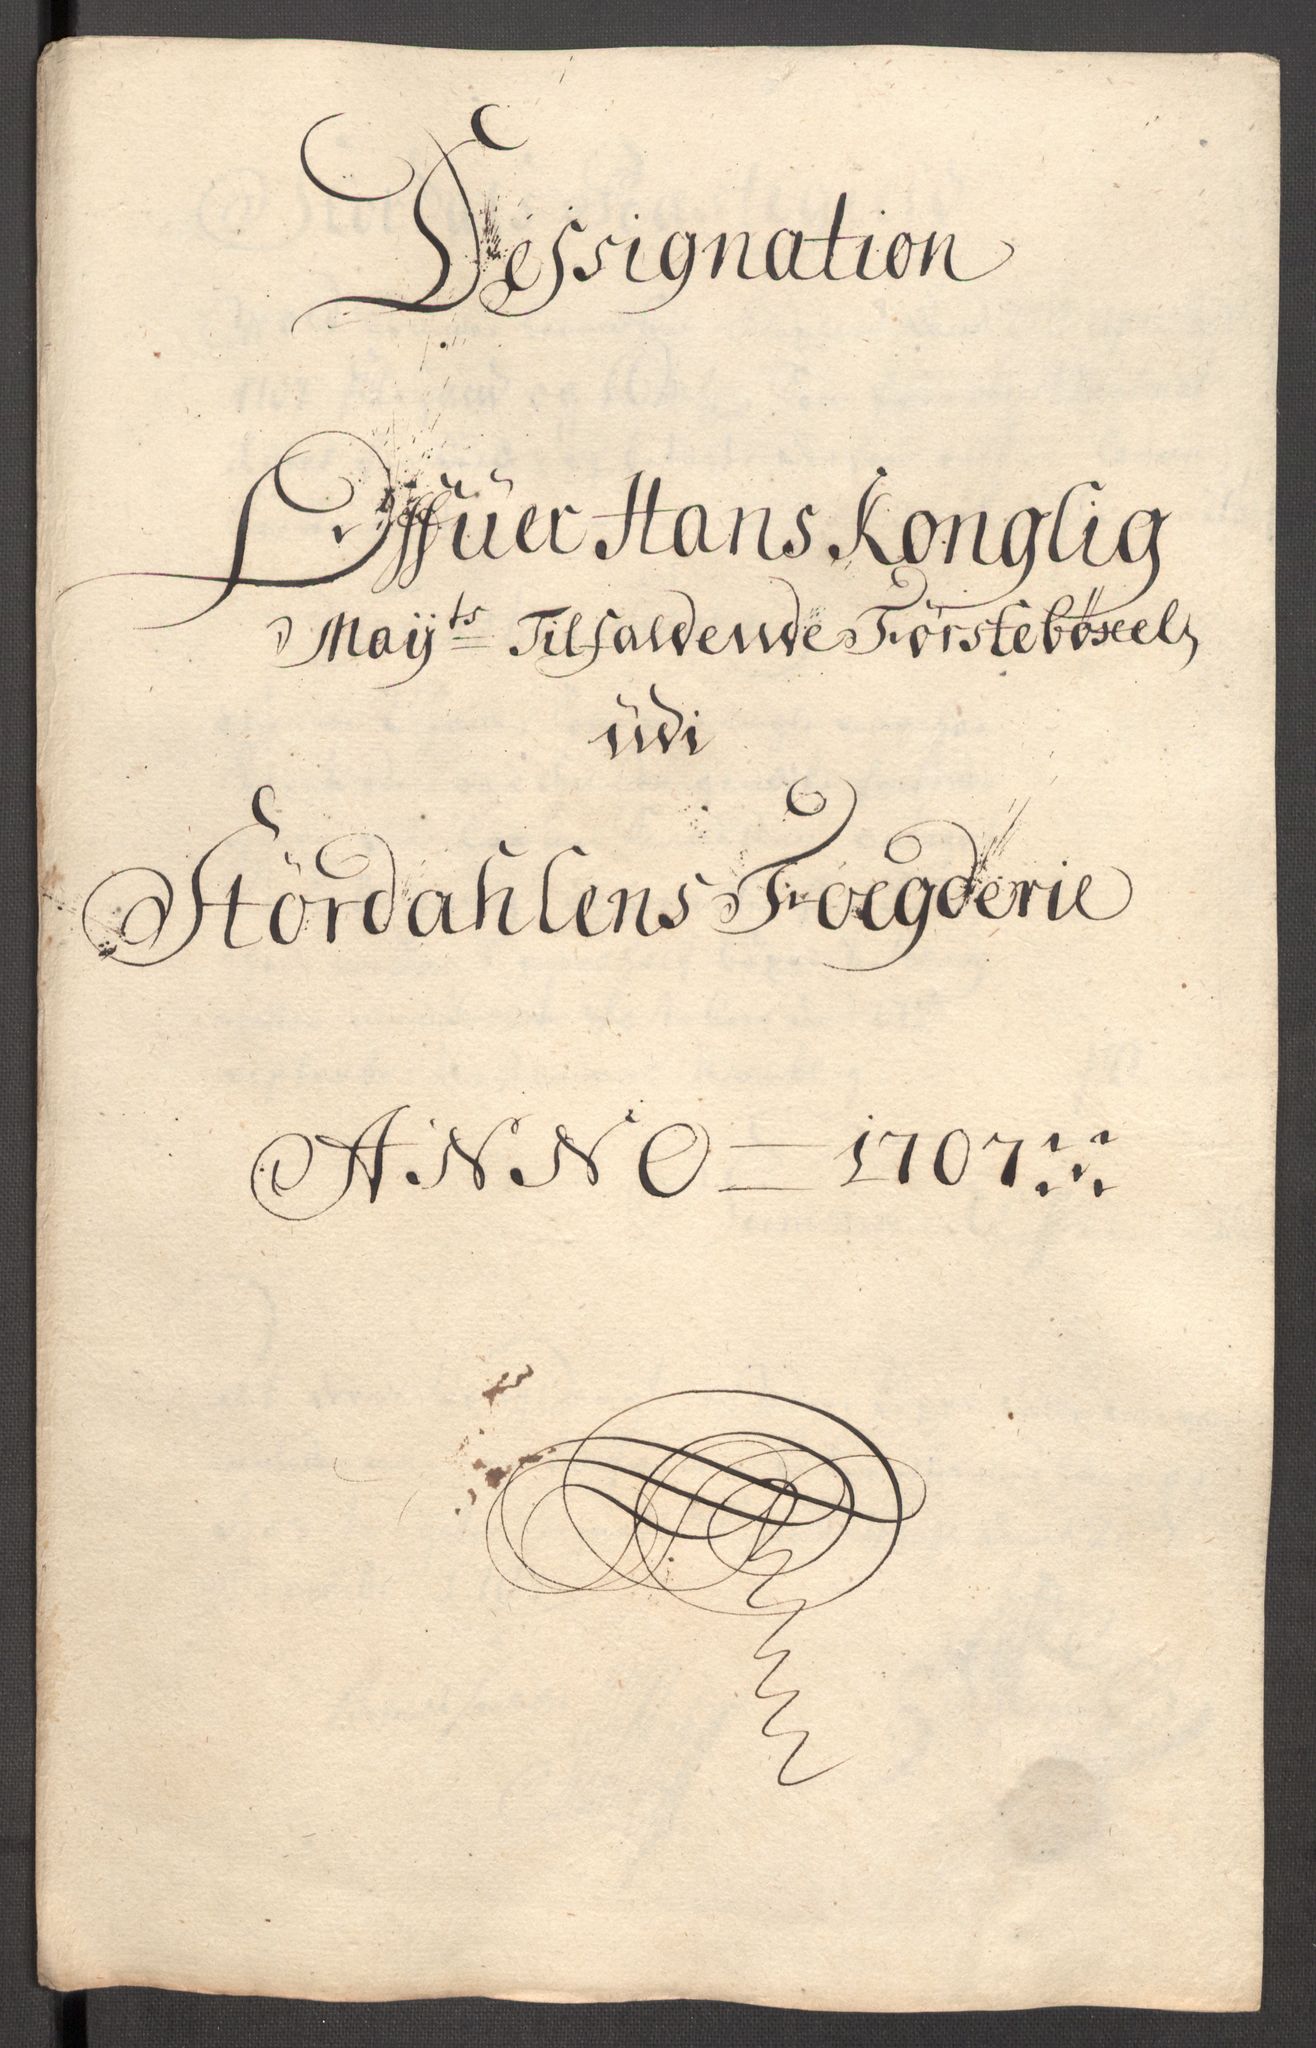 Dessignation
Offüer Hans Konglig
Maÿts Tilfaldende Førstebøxel
üdi
Størdahlens Foegderie
ANNO = 1707